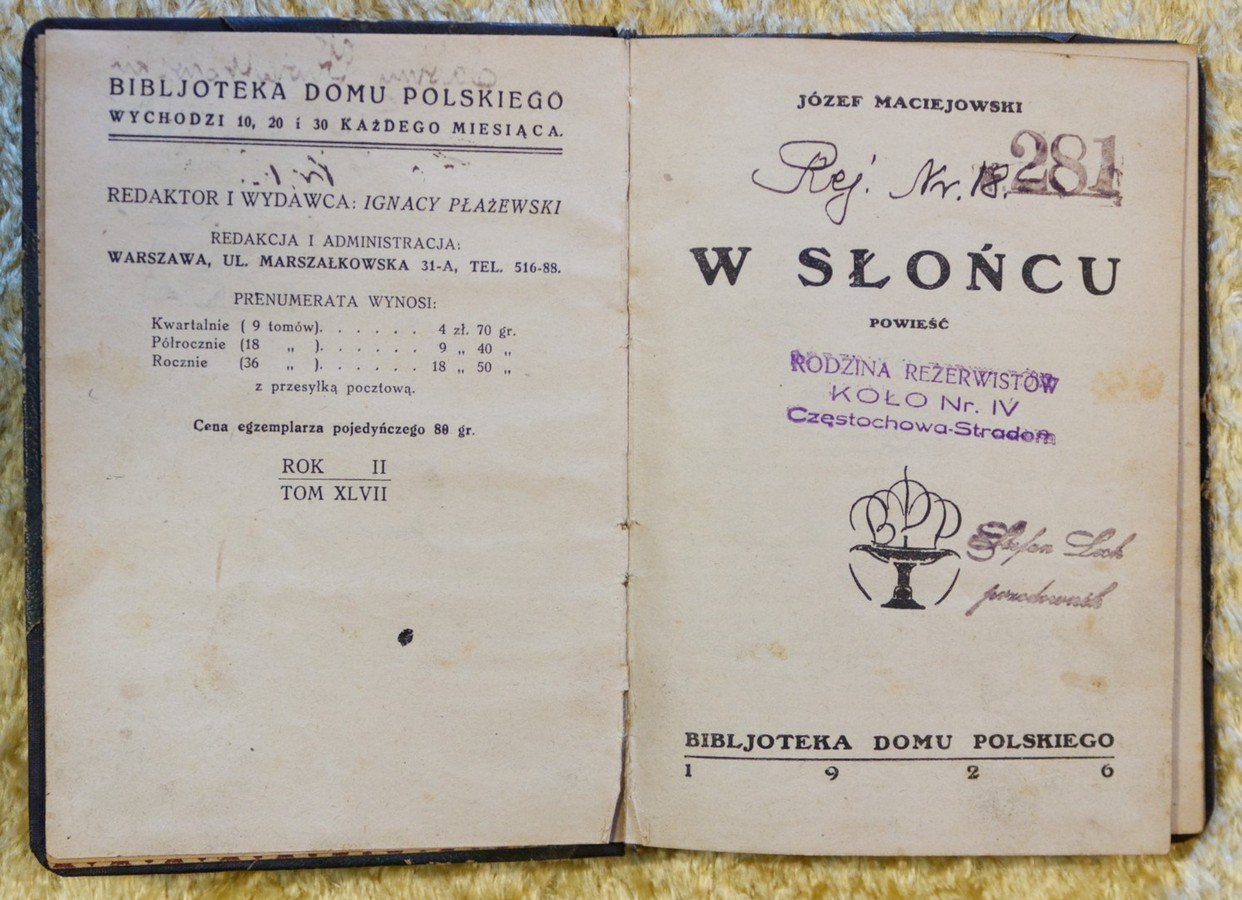 BIBLJOTEKA DOMU POLSKIEGO
WYCHODZI 10, 20 i 30 KAŻDEGO MIESIĄCA.
REDAKTOR I WYDAWCA: IGNACY PŁAŻEWSKI
REDAKCJA I ADMINISTRACJA:
WARSZAWA, UL. MARSZAŁKOWSKA 31-A, TEL. 516-88.
PRENUMERATA WYNOSI:
Kwartalnie ( 9 tomów). . . . . . 4 zł. 70 gr.
Półrocznie (18 „ ). . . . . . 9 „ 40 „
Rocznie (36 „ ). . . . . . 18 „ 50 „
z przesyłką pocztową.
Cena egzemplarza pojedyńczego 80 gr.
ROK II
TOM XLVII
JÓZEF MACIEJOWSKI
Rej. Nr. 18. 281
W SŁOŃCU
POWIEŚĆ
RODZINA REZERWISTÓW
KOŁO Nr. IV
Częstochowa-Stradom
BDP
Stefan
BIBLJOTEKA DOMU POLSKIEGO
1926